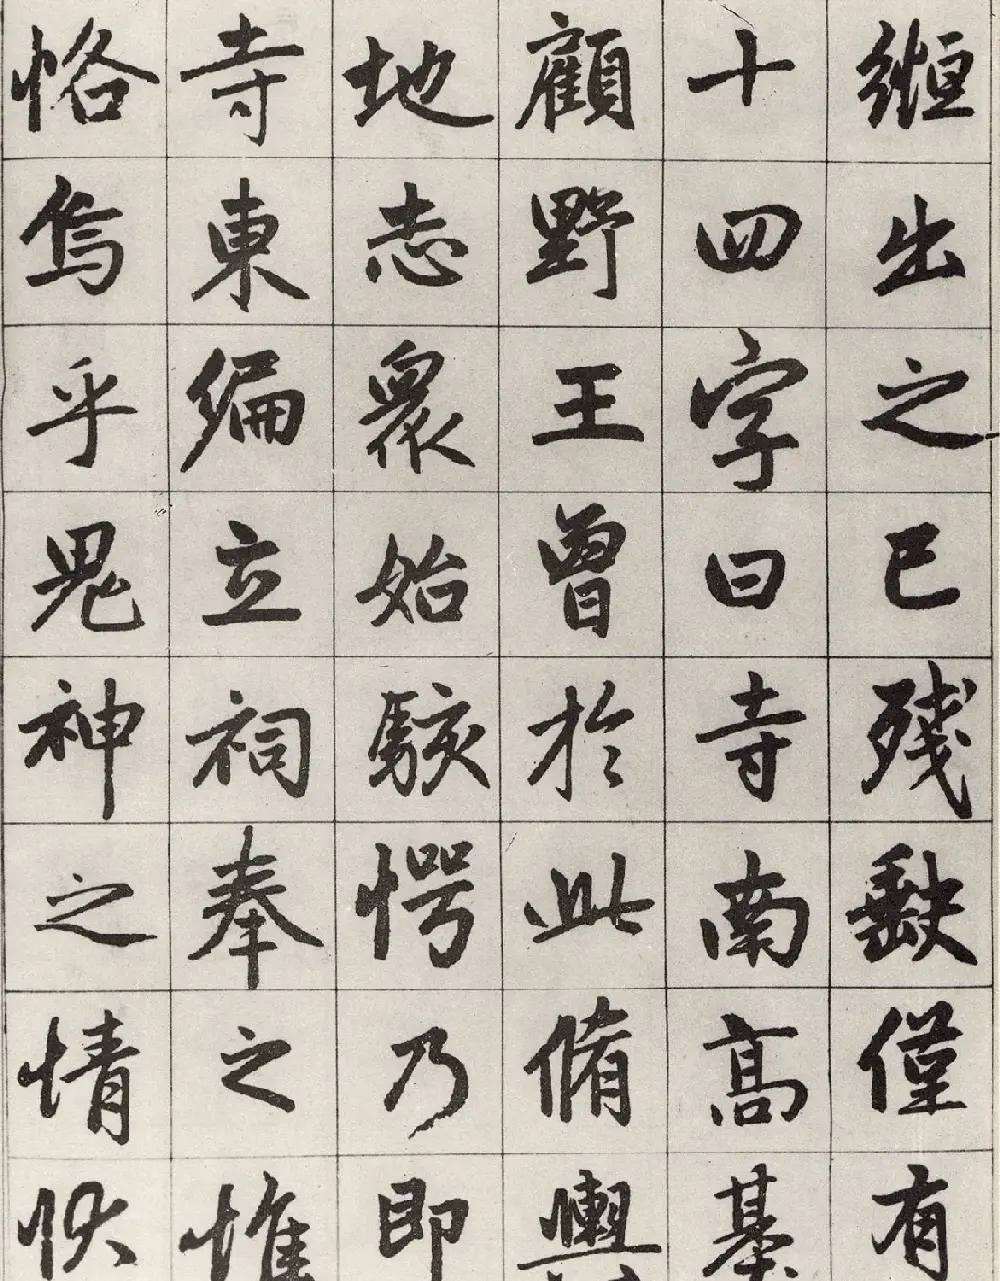 縆出之已殘缺僅有
十四字曰寺南高基
顧野王曾於此脩輿
地志衆始駭愕乃即
寺東偏立祠奉之惟
恪焉乎鬼神之情